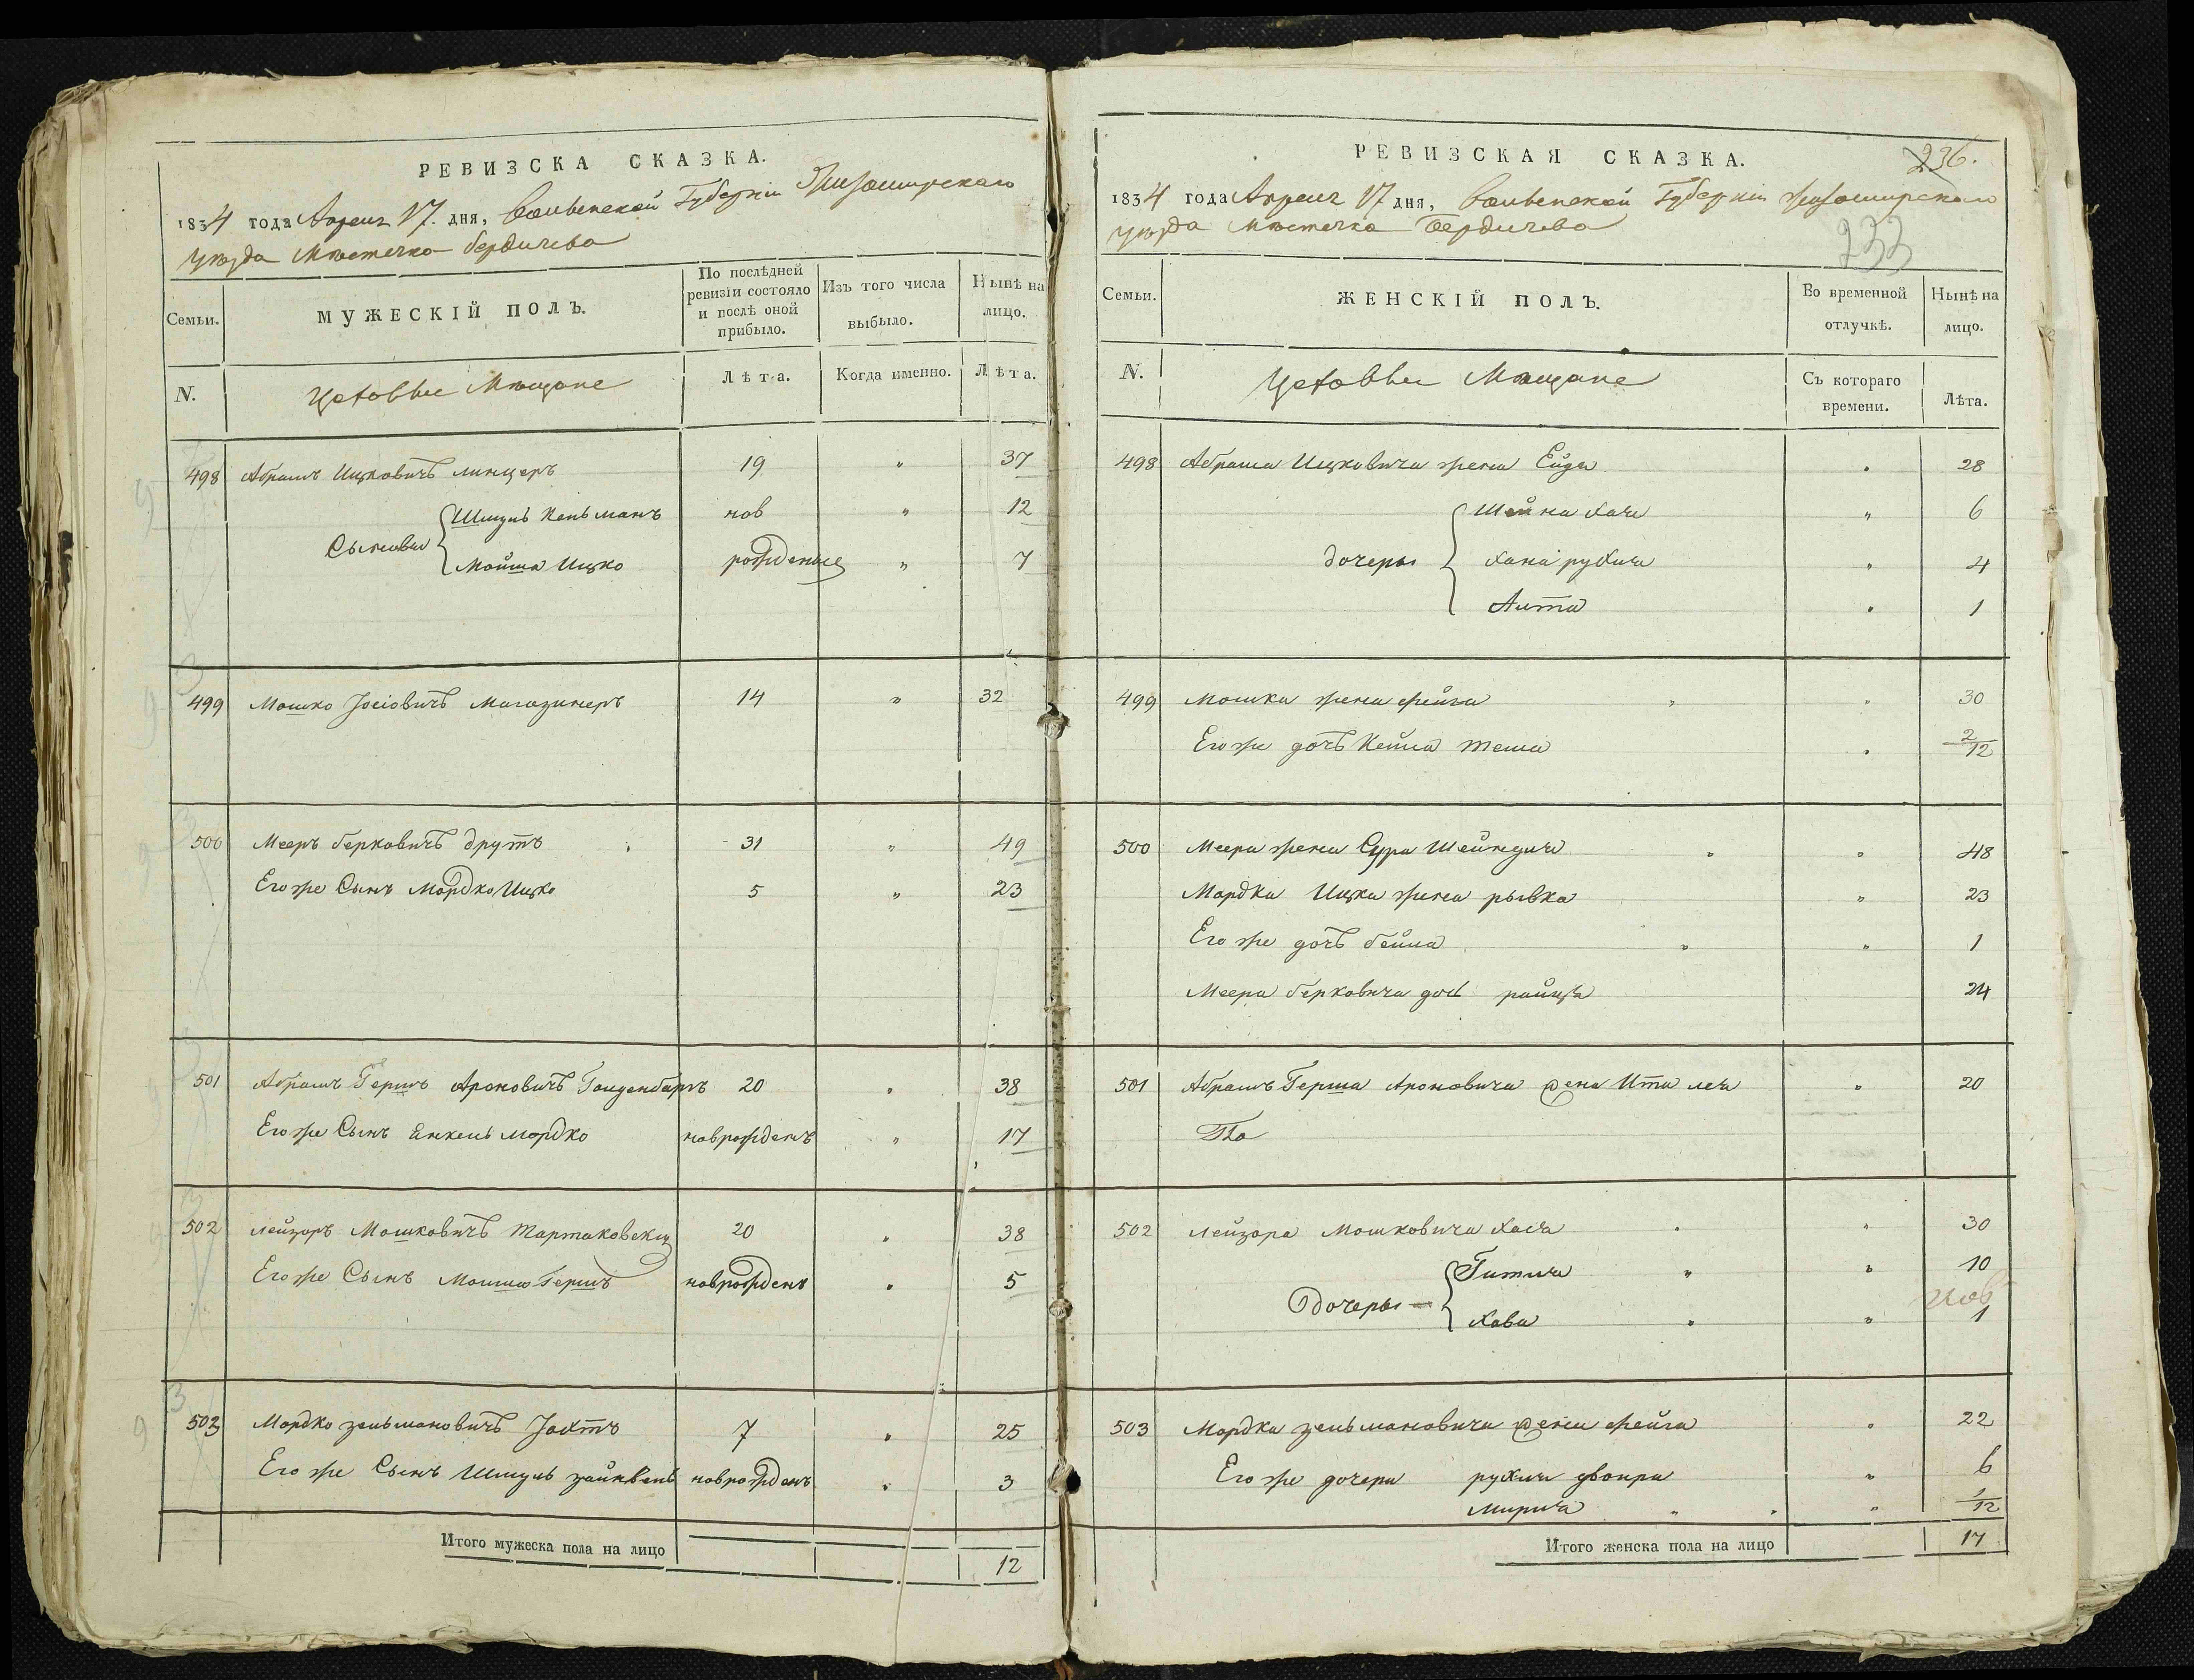 РЕВИЗСКА СКАЗКА.
1834 года Апреля 17. дня, Волынской Губерніи Житомирскаго
уѣзда Мѣстечка Бердичева
Семьи.
МУЖЕСКІЙ ПОЛЪ.
По послѣдней ревизіи состояло и послѣ оной прибыло.
Изъ того числа выбыло.
Нынѣ на лицо.
N.
Цеховые Мѣщане
Лѣта.
Когда именно.
Лѣта.
498 Абрамъ Ицковичъ Линцеръ 19 " 37
Сыновья { Шмуль Кельманъ нов " 12
Мойша Ицко рожденые " 7
499 Мошко Іосіовичъ Магазинеръ 14 " 32
500 Мееръ Берковичъ Друтъ 31 " 49
Егоже Сынъ Мордко Ицко 5 " 23
501 Абрамъ Гершъ Ароновичъ Голденбаръ 20 " 38
Егоже Сынъ Янкель Мордко новрожденъ " 17
502 Лейзоръ Мошковичъ Тартаковски 20 " 38
Егоже Сынъ Мошко Гершъ новрожденъ " 5
503 Мордко Зельмановичъ Іохтъ 7 " 25
Егоже Сынъ Шмуль Зайнвель новрожденъ " 3
Итого мужеска пола на лицо 12
РЕВИЗСКАЯ СКАЗКА.
236.
1834 года Апреля 17 дня, Волынской Губерніи Житомирскаго
уѣзда Мѣстечка Бердичева
233
Семьи.
ЖЕНСКІЙ ПОЛЪ.
Во временной отлучкѣ.
Нынѣ на лицо.
N.
Цеховые Мѣщане
Съ котораго времени.
Лѣта.
498 Абрама Ицковича жена Ейдя " 28
Шейна Хая " 6
дочеры { Хана рухля " 4
Аита " 1
499 Мошка жена Фейга " 30
Егоже дочъ Кейла Тема " 2/12
500 Меера жена Сура Шейндля " 48
Мордка Ицка жена рывка " 23
Егоже дочъ бейла " 1
Меера берковича дочь райца 24
501 Абрамъ Герша Ароновича жена Ита лея " 20
502 Лейзора Мошковича Хася " 30
{ Гитля " 10
Дочеры
Хава " 1
503 Мордка Зельмановича жена Фейга " 22
Егоже дочери рухля двойра " 6
Мирля " 1/12
Итого женска пола на лицо 17